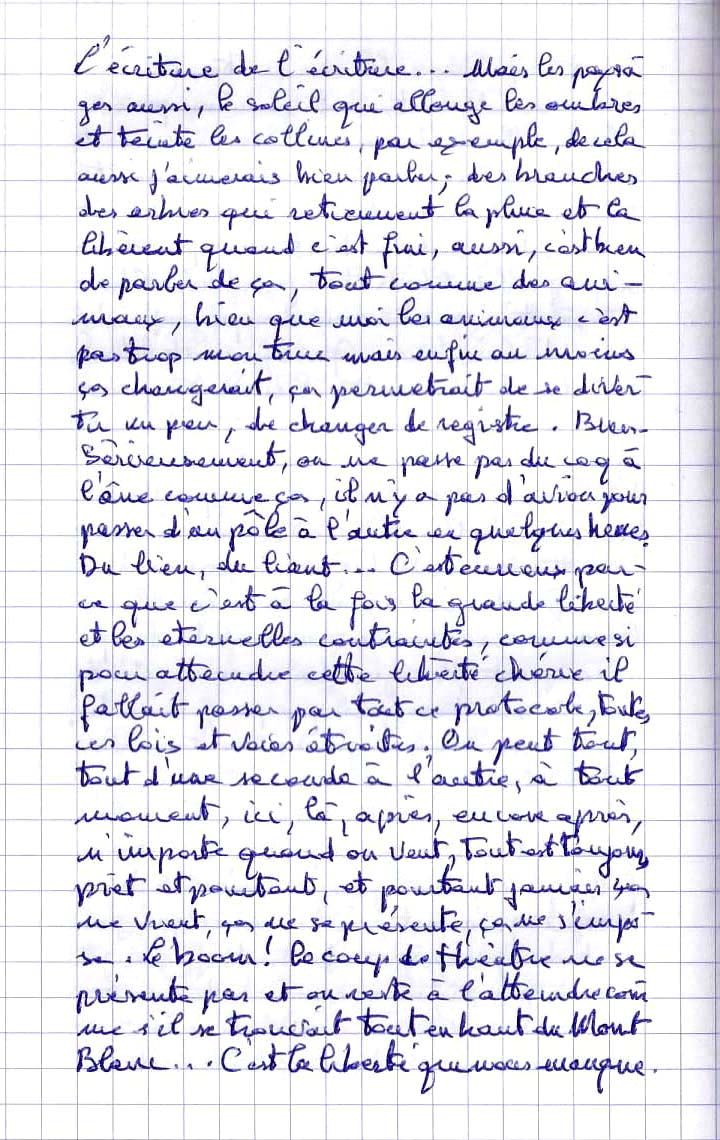 L'écriture de l'écriture... Mais les paysa
ges aussi, le soleil qui allonge les ombres
et teinte les collines, par exemple, de cela
aussi j'aimerais bien parler; des branches
des arbres qui retiennent la pluie et la
libèrent quand c'est fini, aussi, c'est bien
de parler de ça, tout comme des ani-
maux, bien que moi les animaux c'est
pas trop mon truc mais enfin au moins
ça changerait, ça permetrait de se diver-
tir un peu, de changer de registre. Bien.
Sérieusement, on ne passe pas du coq à
l'âne comme ça, il n'y a pas d'avion pour
passer d'un pôle à l'autre en quelques heures.
Du lien, du liant... C'est curieux par-
ce que c'est à la fois la grande liberté
et les éternelles contraintes, comme si
pour atteindre cette liberté chérie il
fallait passer par tout ce protocole, toutes
ces lois et voies étroites. On peut tout,
tout d'une seconde à l'autre, à tout
moment, ici, là, après, encore après,
n'importe quand on veut, tout est toujours
prêt et pourtant, et pourtant jamais ça
ne vient, ça ne se présente, ça ne s'impo-
se. Le boom! Le coup de théâtre ne se
présente pas et on reste à l'attendre com
me s'il se trouvait tout en haut du Mont
Blanc... C'est la liberté qui nous manque.